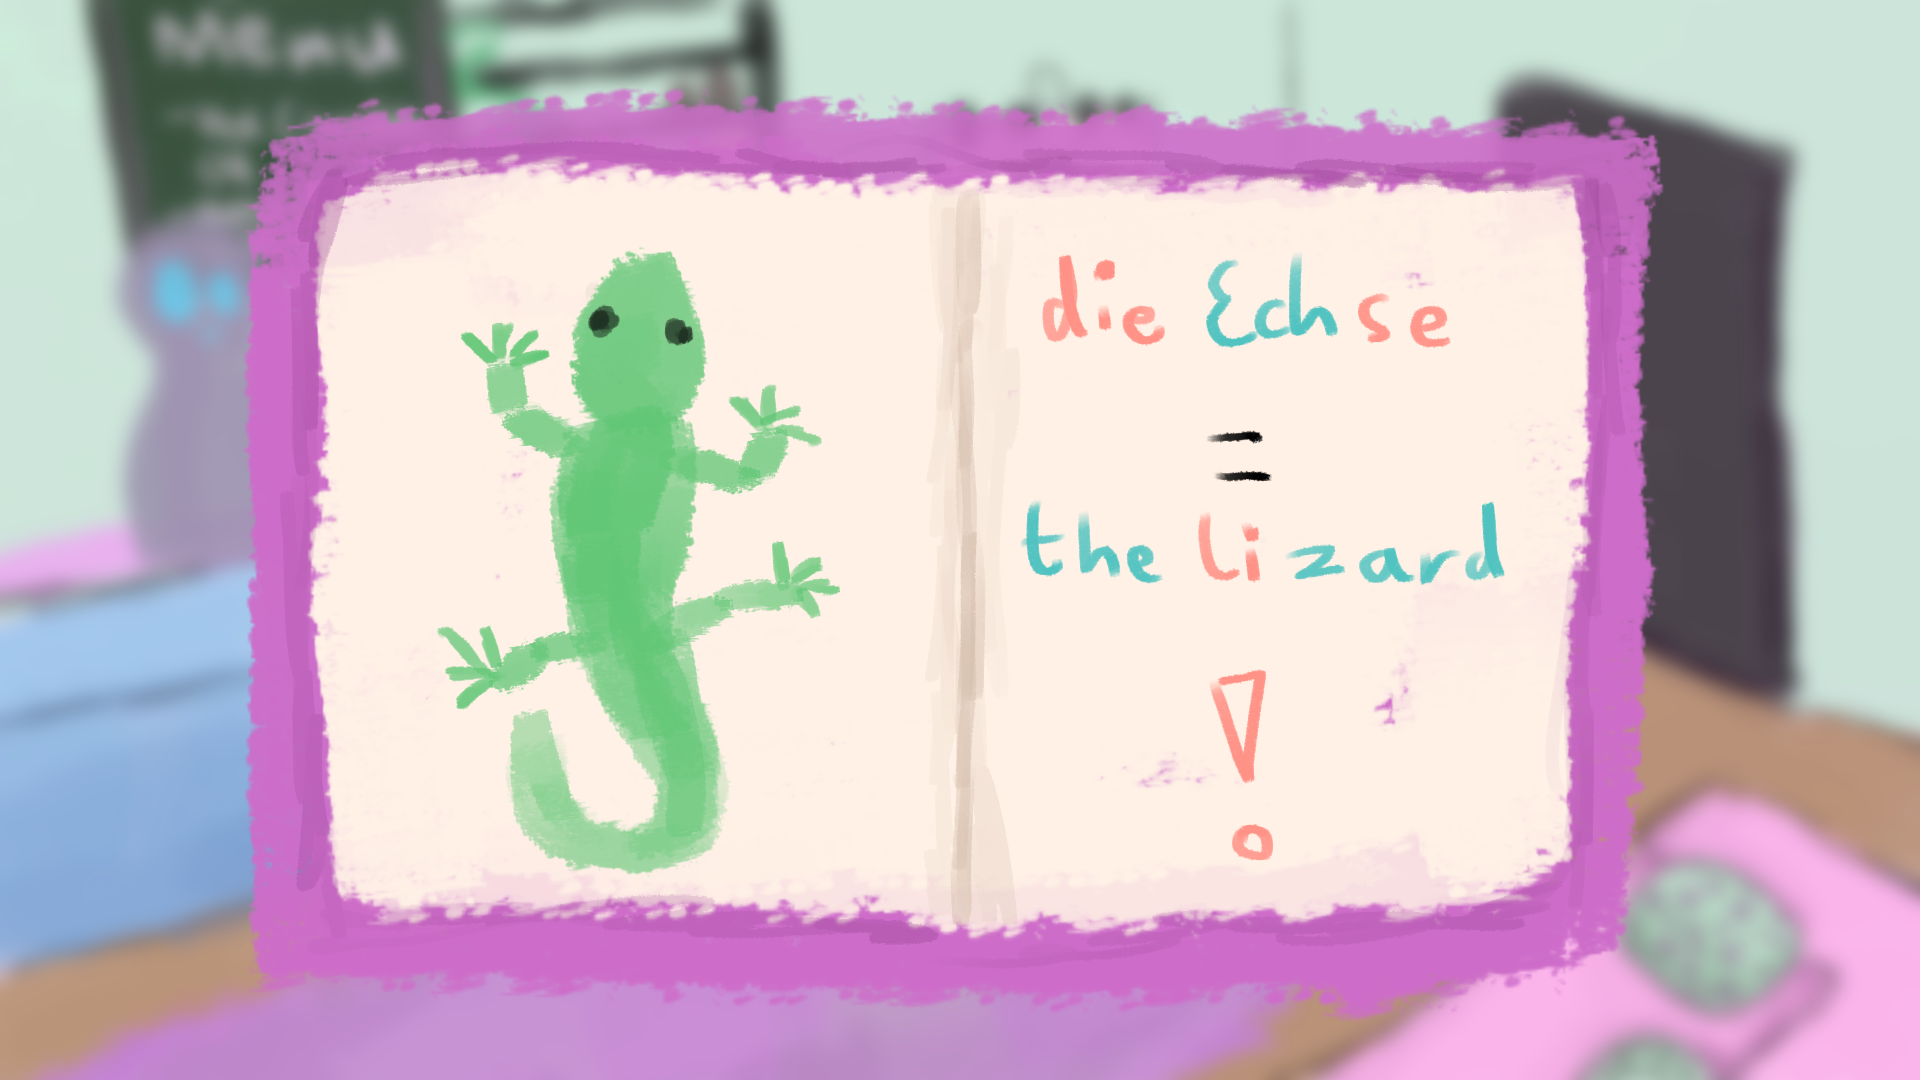 Menu
die Echse
=
the lizard
!